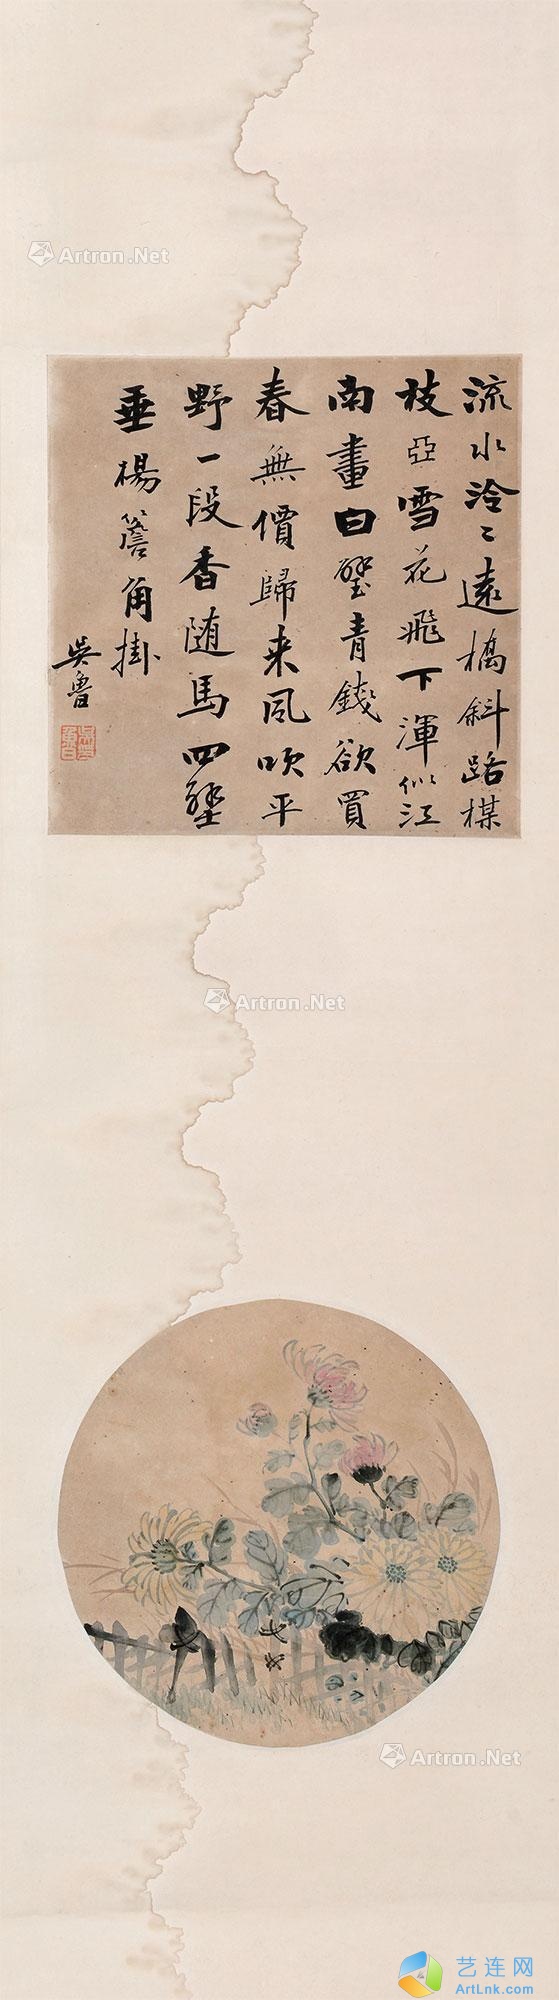 Artron.Net
流水泠〻遠橋斜路楳
枝亞雪花飛下渾似江
南畫白璧青錢欲買
春無價歸来風吹平
野一段香随馬四壁
垂楊簷角掛
吳魯
Artron.Net
Artron.Net
艺连网
ArtLnk.com